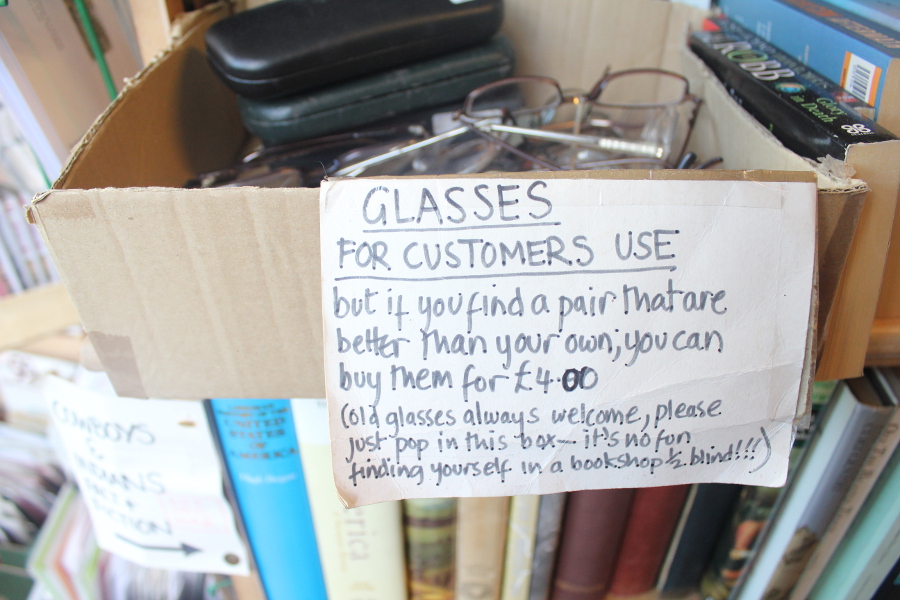 ROBB
in Death
GLASSES
FOR CUSTOMERS USE
but if you find a pair that are
better than your own; you can
buy them for £4.00
(old glasses always welcome, please
just pop in this box— it's no fun
finding yourself in a bookshop ½ blind!!!)
COWBOYS
UNITED
STATES
OF
AMERICA